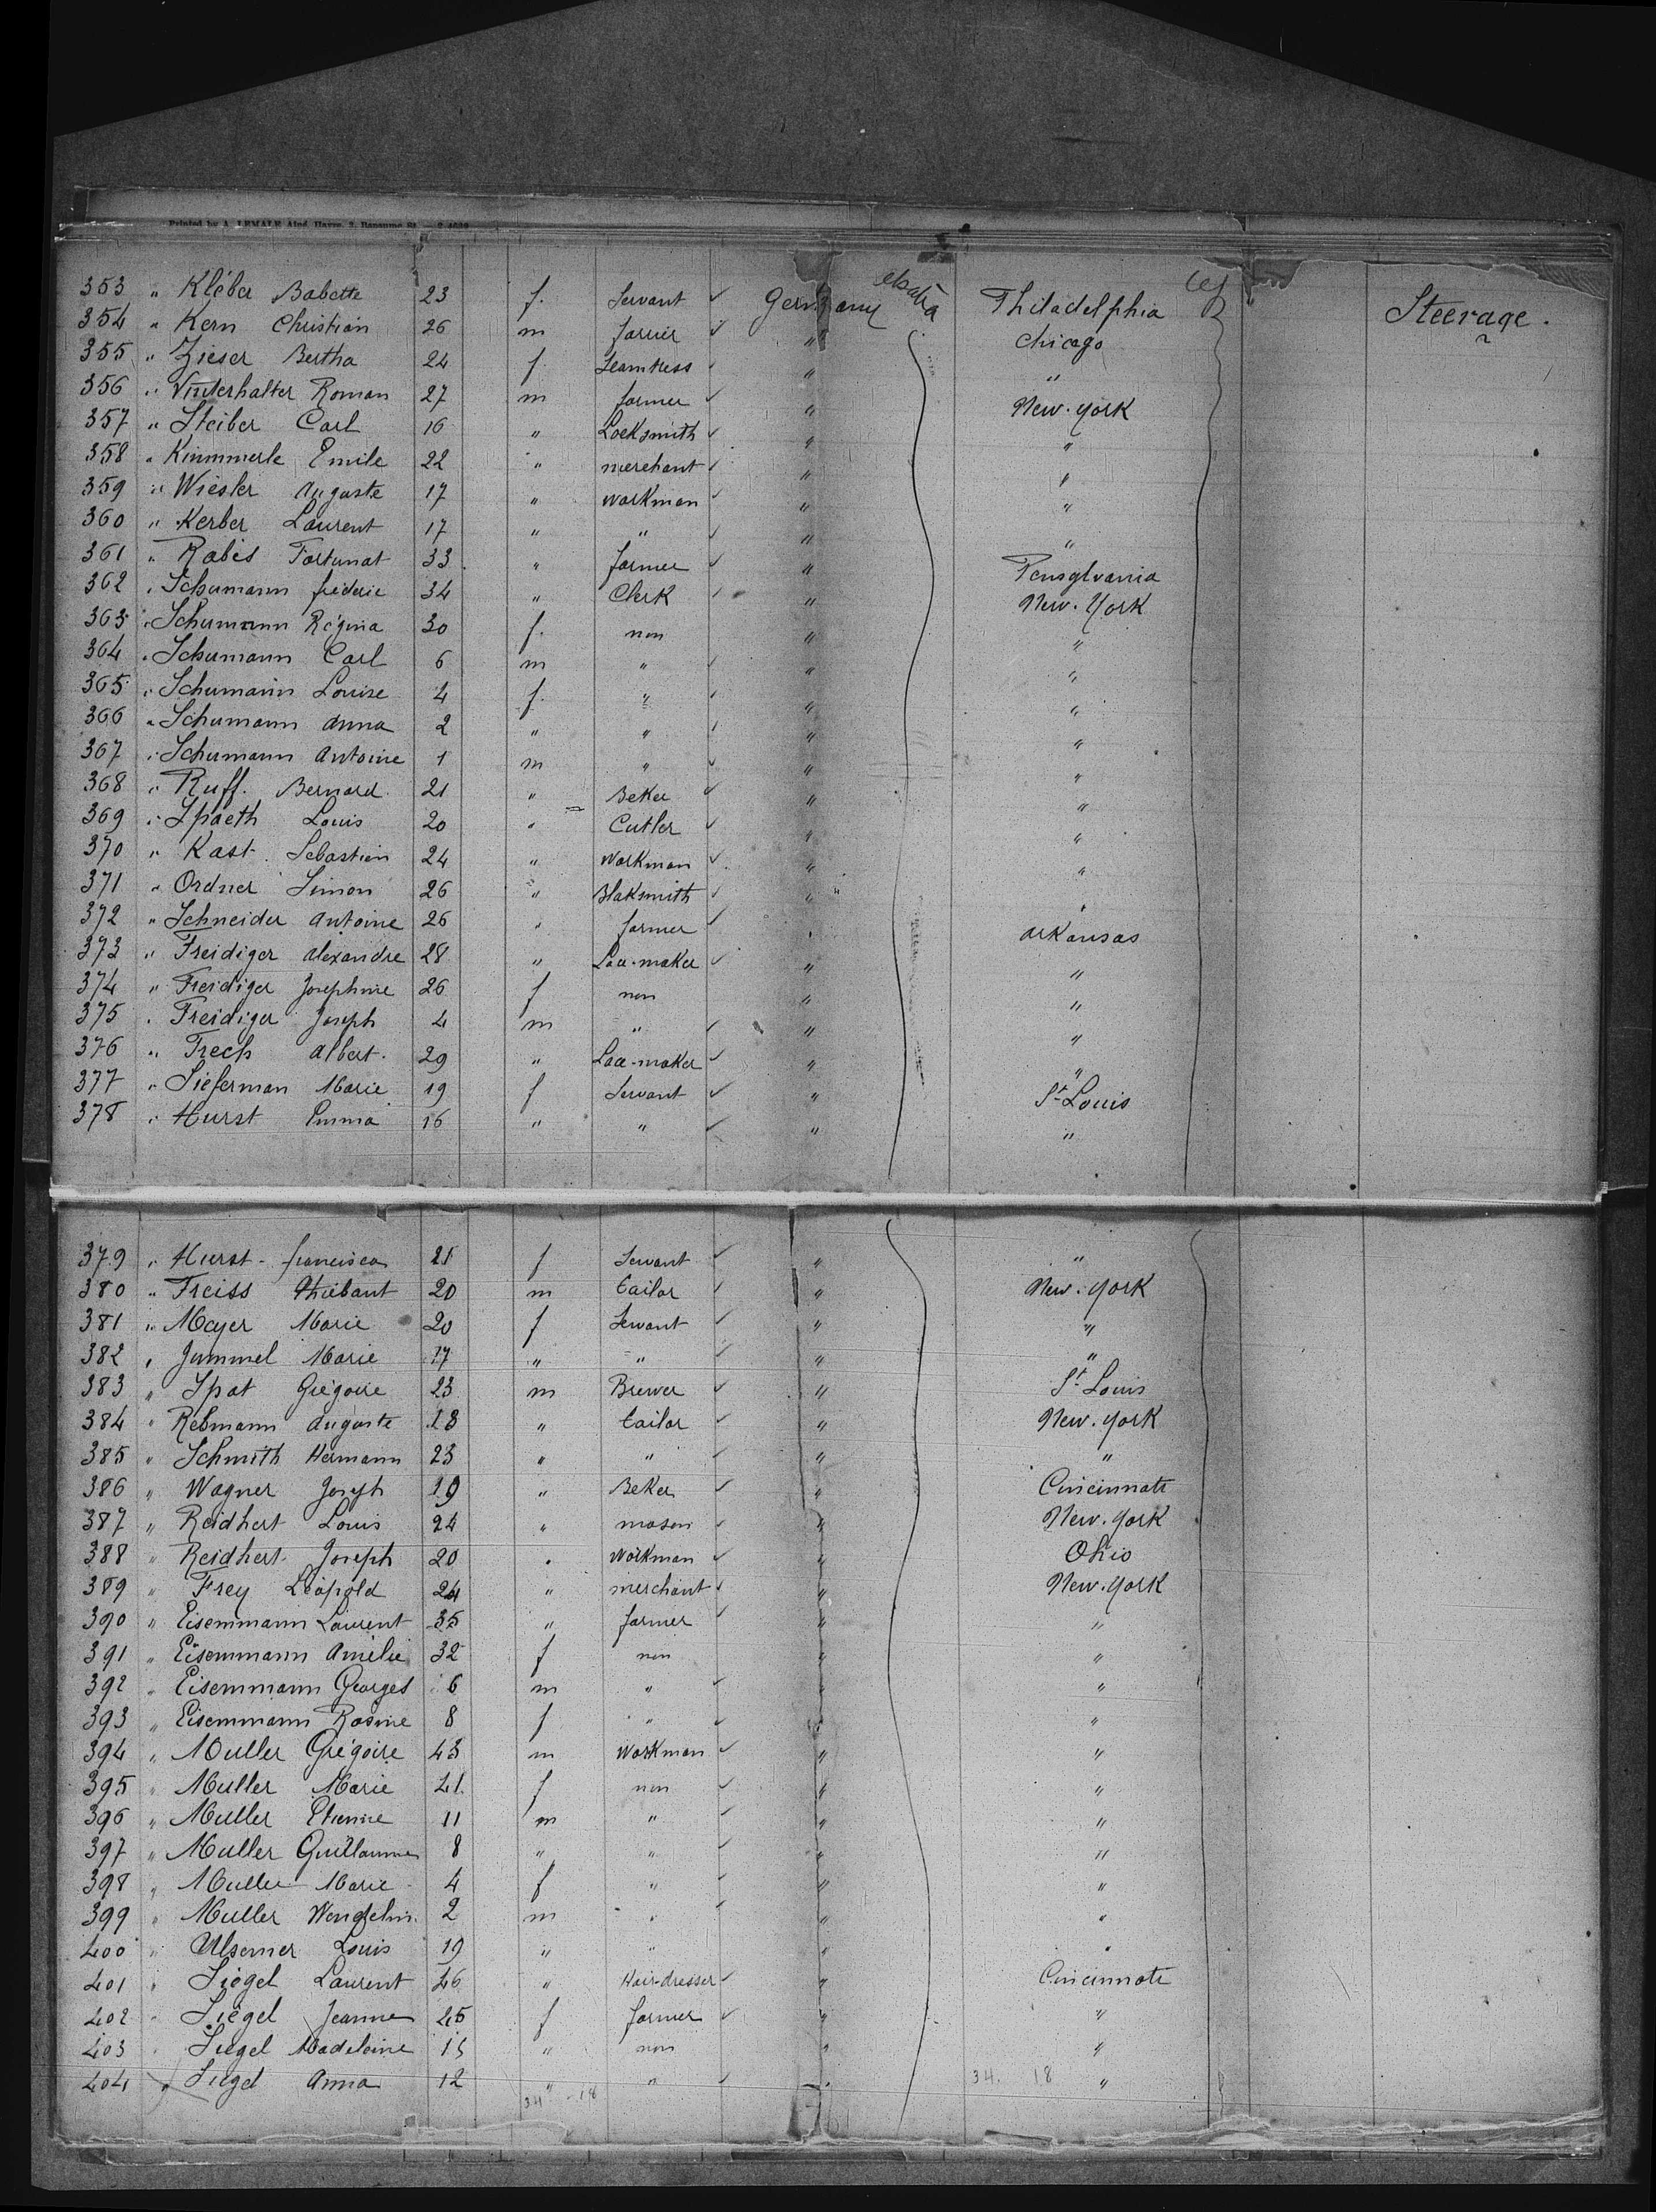 Printed by A. LEMALE Aîné, Havre, 3,
353 " Kléber Babette 23 f. Servant ✓ Germany Philadelphia Steerage.
354 " Kern Christian 26 m farrier ✓ " Chicago
355 " Zieser Bertha 24 f. Seamtress ✓ " "
356 " Vinterhalter Roman 27 m farmer ✓ " New-york
357 " Steiber Carl 16 " Locksmith ✓ " "
358 " Kimmmerle Emile 22 " merchant ✓ " "
359 " Wiesler Auguste 17 " workman ✓ " "
360 " Kerber Laurent 17 " " ✓ " "
361 " Rabis Fortunat 33 " farmer ✓ " Pensylvania
362 " Schumann fréderic 34 " Clerk ✓ " New-York
363 " Schumann Régina 30 f. non " "
364 " Schumann Carl 6 m " ✓ " "
365 " Schumann Louise 4 f. " ✓ " "
366 " Schumann Anna 2 " " ✓ " "
367 " Schumann Antoine 1 m " ✓ " "
368 " Ruff. Bernard 21 " Beker ✓ " "
369 " Spaeth Louis 20 " Cutler ✓ " "
370 " Kast Sebastien 24 " Workman ✓ " "
371 " Ordner Simon 26 " Blaksmith ✓ " "
372 " Schneider Antoine 26 " farmer ✓ " Arkansas
373 " Freidiger Alexandre 28 " Lace-maker ✓ " "
374 " Freidiger Josephine 26 f non " "
375 " Freidiger Joseph 4 m " ✓ " "
376 " Frech Albert. 29 " Lace-maker ✓ " "
377 " Sieferman Marie 19 f Servant ✓ " St Louis
378 " Hurst Emma 16 " " ✓ " "
379 " Hurst - francisca 21 f Servant ✓ " "
380 " Freiss Thiébaut 20 m tailor ✓ " New-york
381 " Mayer Marie 20 f Servant ✓ " "
382 " Jummel Marie 17 " " ✓ " "
383 " Spat Grégoire 23 m Brewer ✓ " St Louis
384 " Rebmann Auguste 18 " tailor ✓ " New-york
385 " Schmith Hermann 23 " " ✓ " "
386 " Wagner Joseph 19 " Beker ✓ " Cincinnati
387 " Reidhert Louis 24 " mason ✓ " New-york
388 " Reidhert Joseph 20 " Workman ✓ " Ohio
389 " Frey Léopold 24 " merchant ✓ " New-york
390 " Eisemmann Laurent 35 " farmer ✓ " "
391 " Eisemmann Amélie 32 f non " "
392 " Eisemmann Georges 6 m " ✓ " "
393 " Eisemmann Rosine 8 f " ✓ " "
394 " Muller Grégoire 43 m Workman ✓ " "
395 " Muller Marie 41 f non ✓ " "
396 " Muller Etienne 11 m " ✓ " "
397 " Muller Guillaume 8 " " ✓ " "
398 " Muller Marie 4 f " ✓ " "
399 " Muller Wendelin 2 m " ✓ " "
400 " Ulsemer Louis 19 " " " "
401 " Siegel Laurent 46 " Hair-dresser ✓ " Cincinnati
402 " Siegel Jeanne 45 f farmer ✓ " "
403 " Siegel Madeleine 15 " non " "
404 " Siegel Anna 12 " " ✓ " "
34 - 18 34. 18